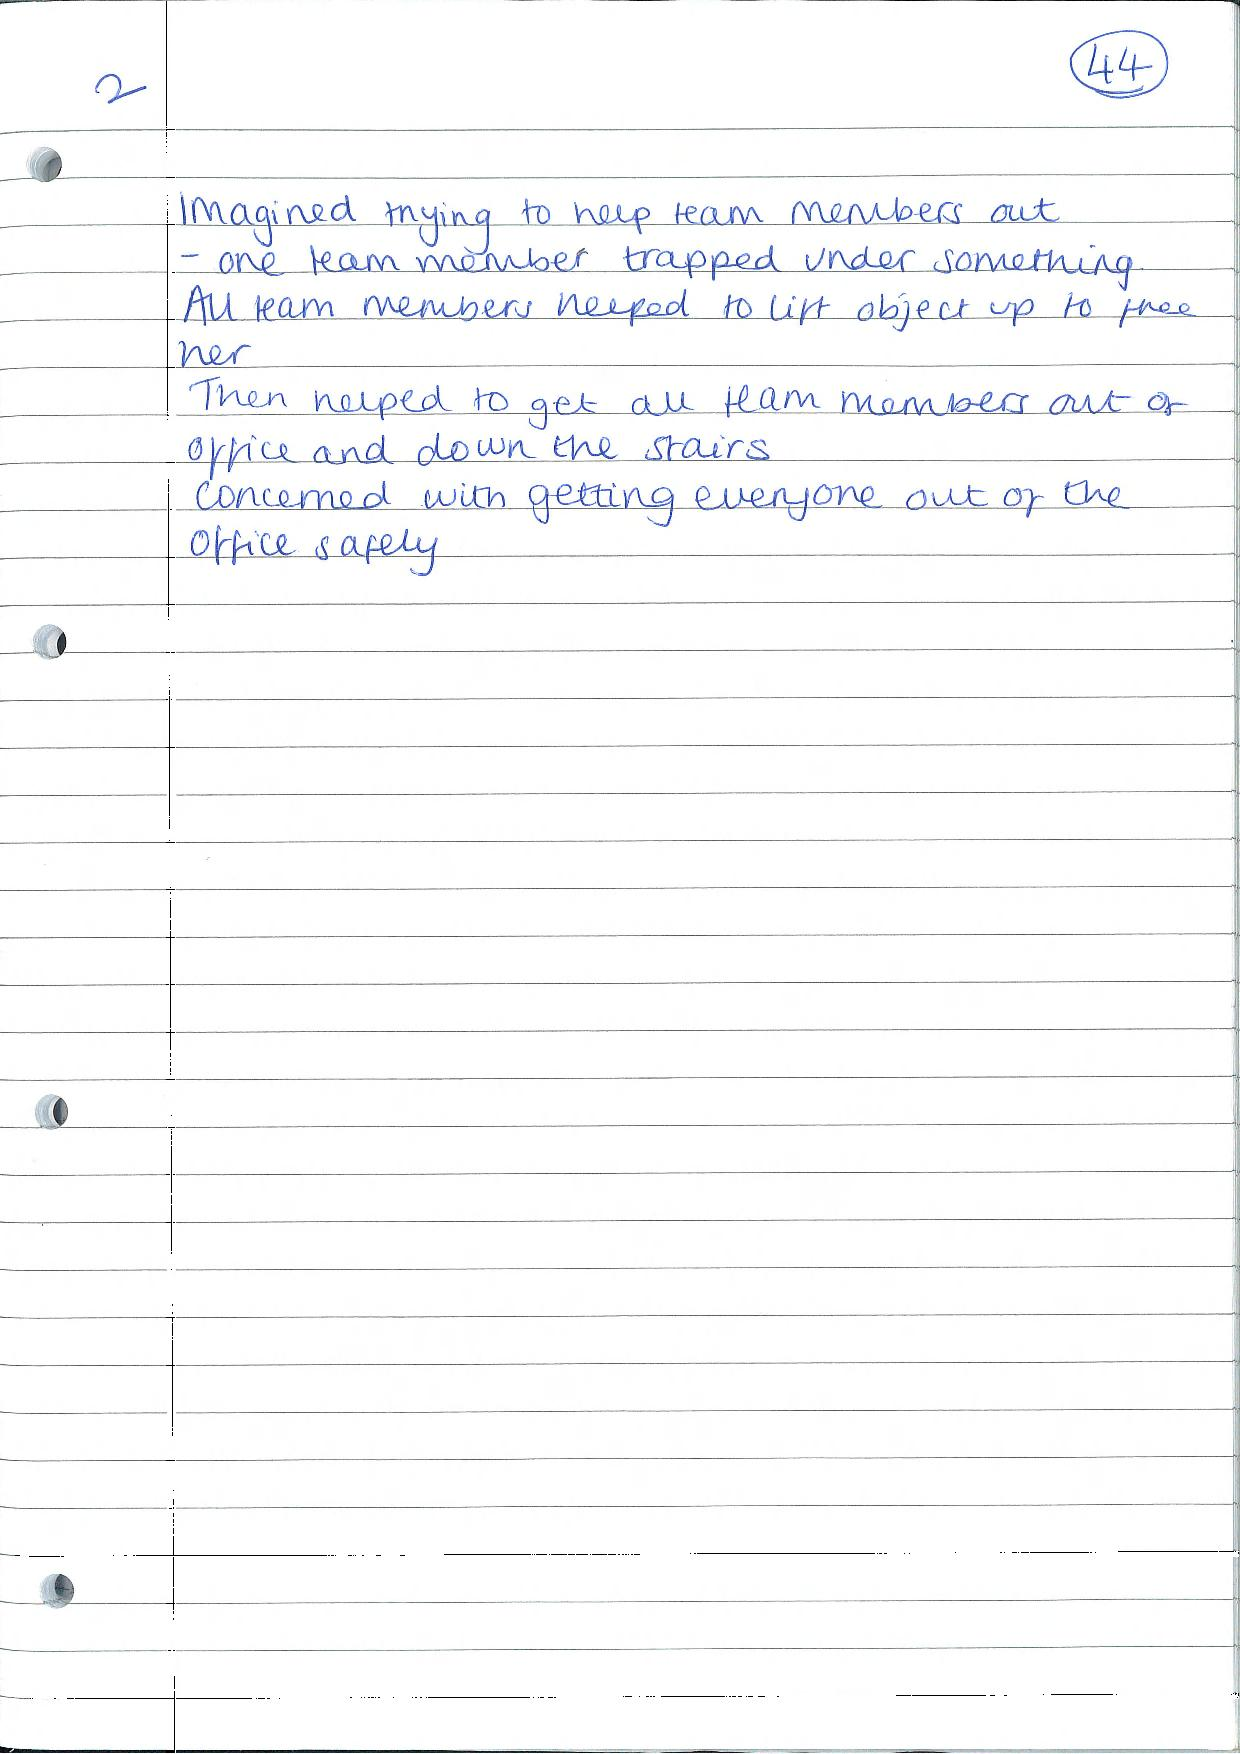 2
44
Imagined trying to help team members out
- one team member trapped under something.
All team members helped to lift object up to free
her
Then helped to get all team members out of
office and down the stairs
Concerned with getting everyone out of the
office safely